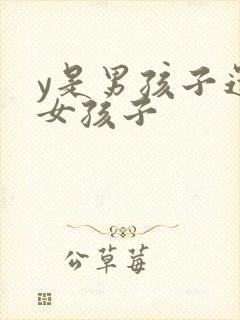 y是男孩子还
女孩子
公草莓